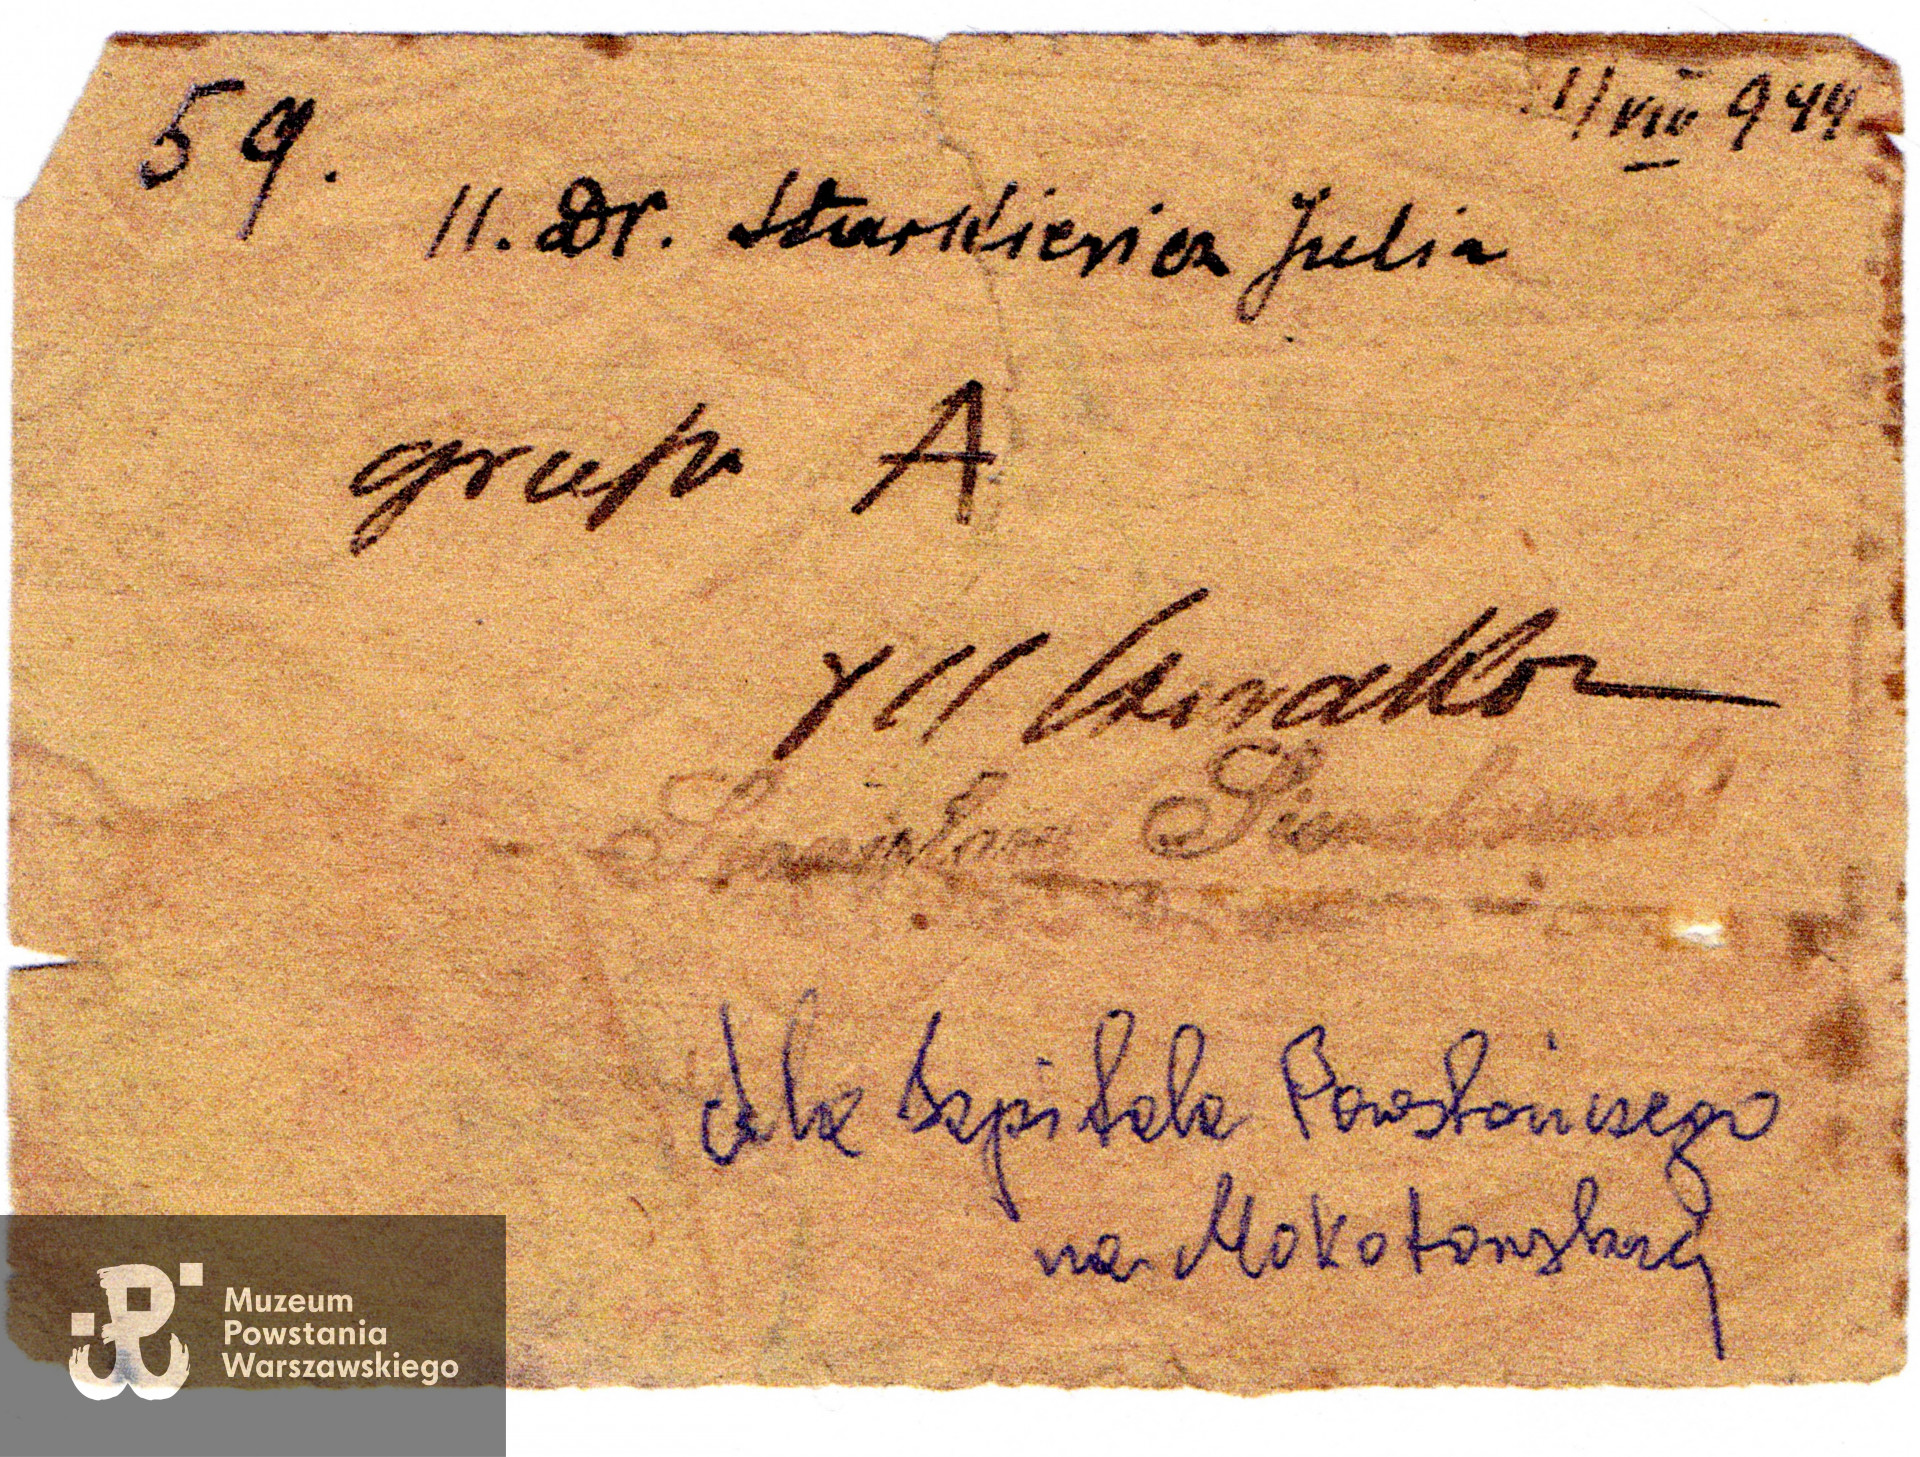 59.
11/VIII 944
11. Dr. Starkiewicz Julia
grupa A
Stanisław
dla Szpitala Powstańczego
na Mokotowskiej
Muzeum
Powstania
Warszawskiego